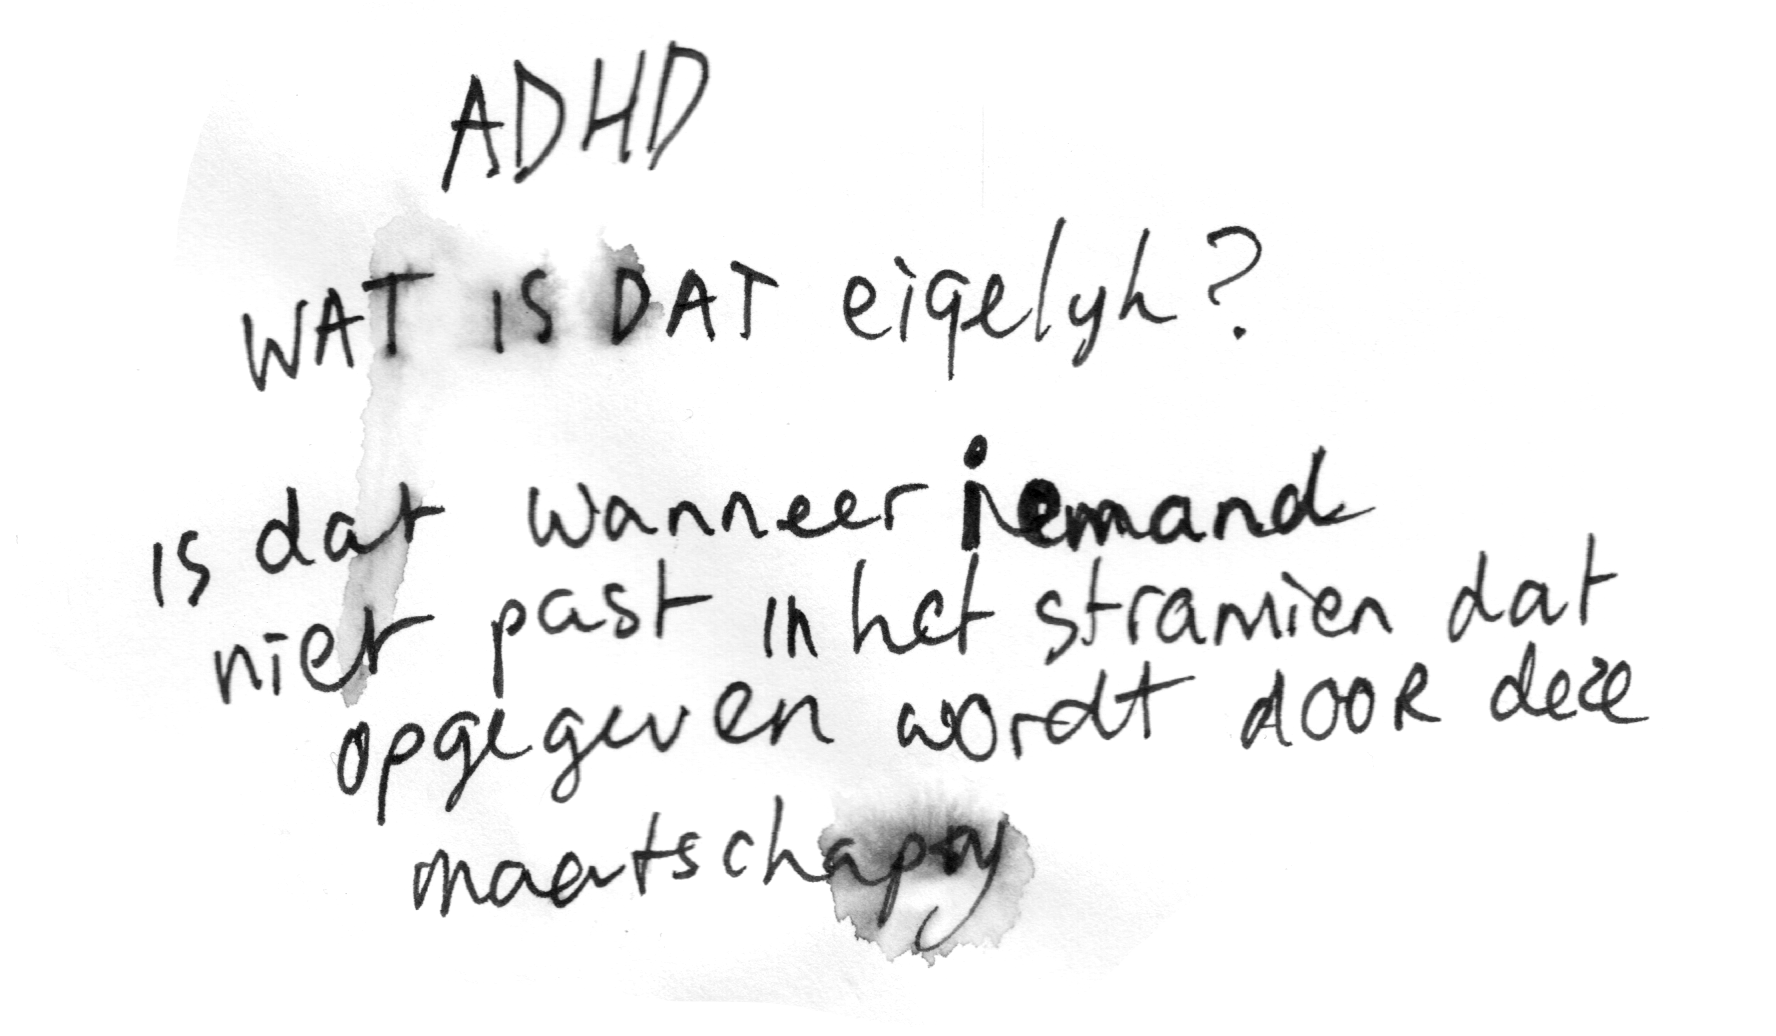 ADHD
WAT IS DAT eigelyk?
is dat wanneer iemand
niet past in het stramien dat
opgegeven wordt dOOR deze
maatschappy